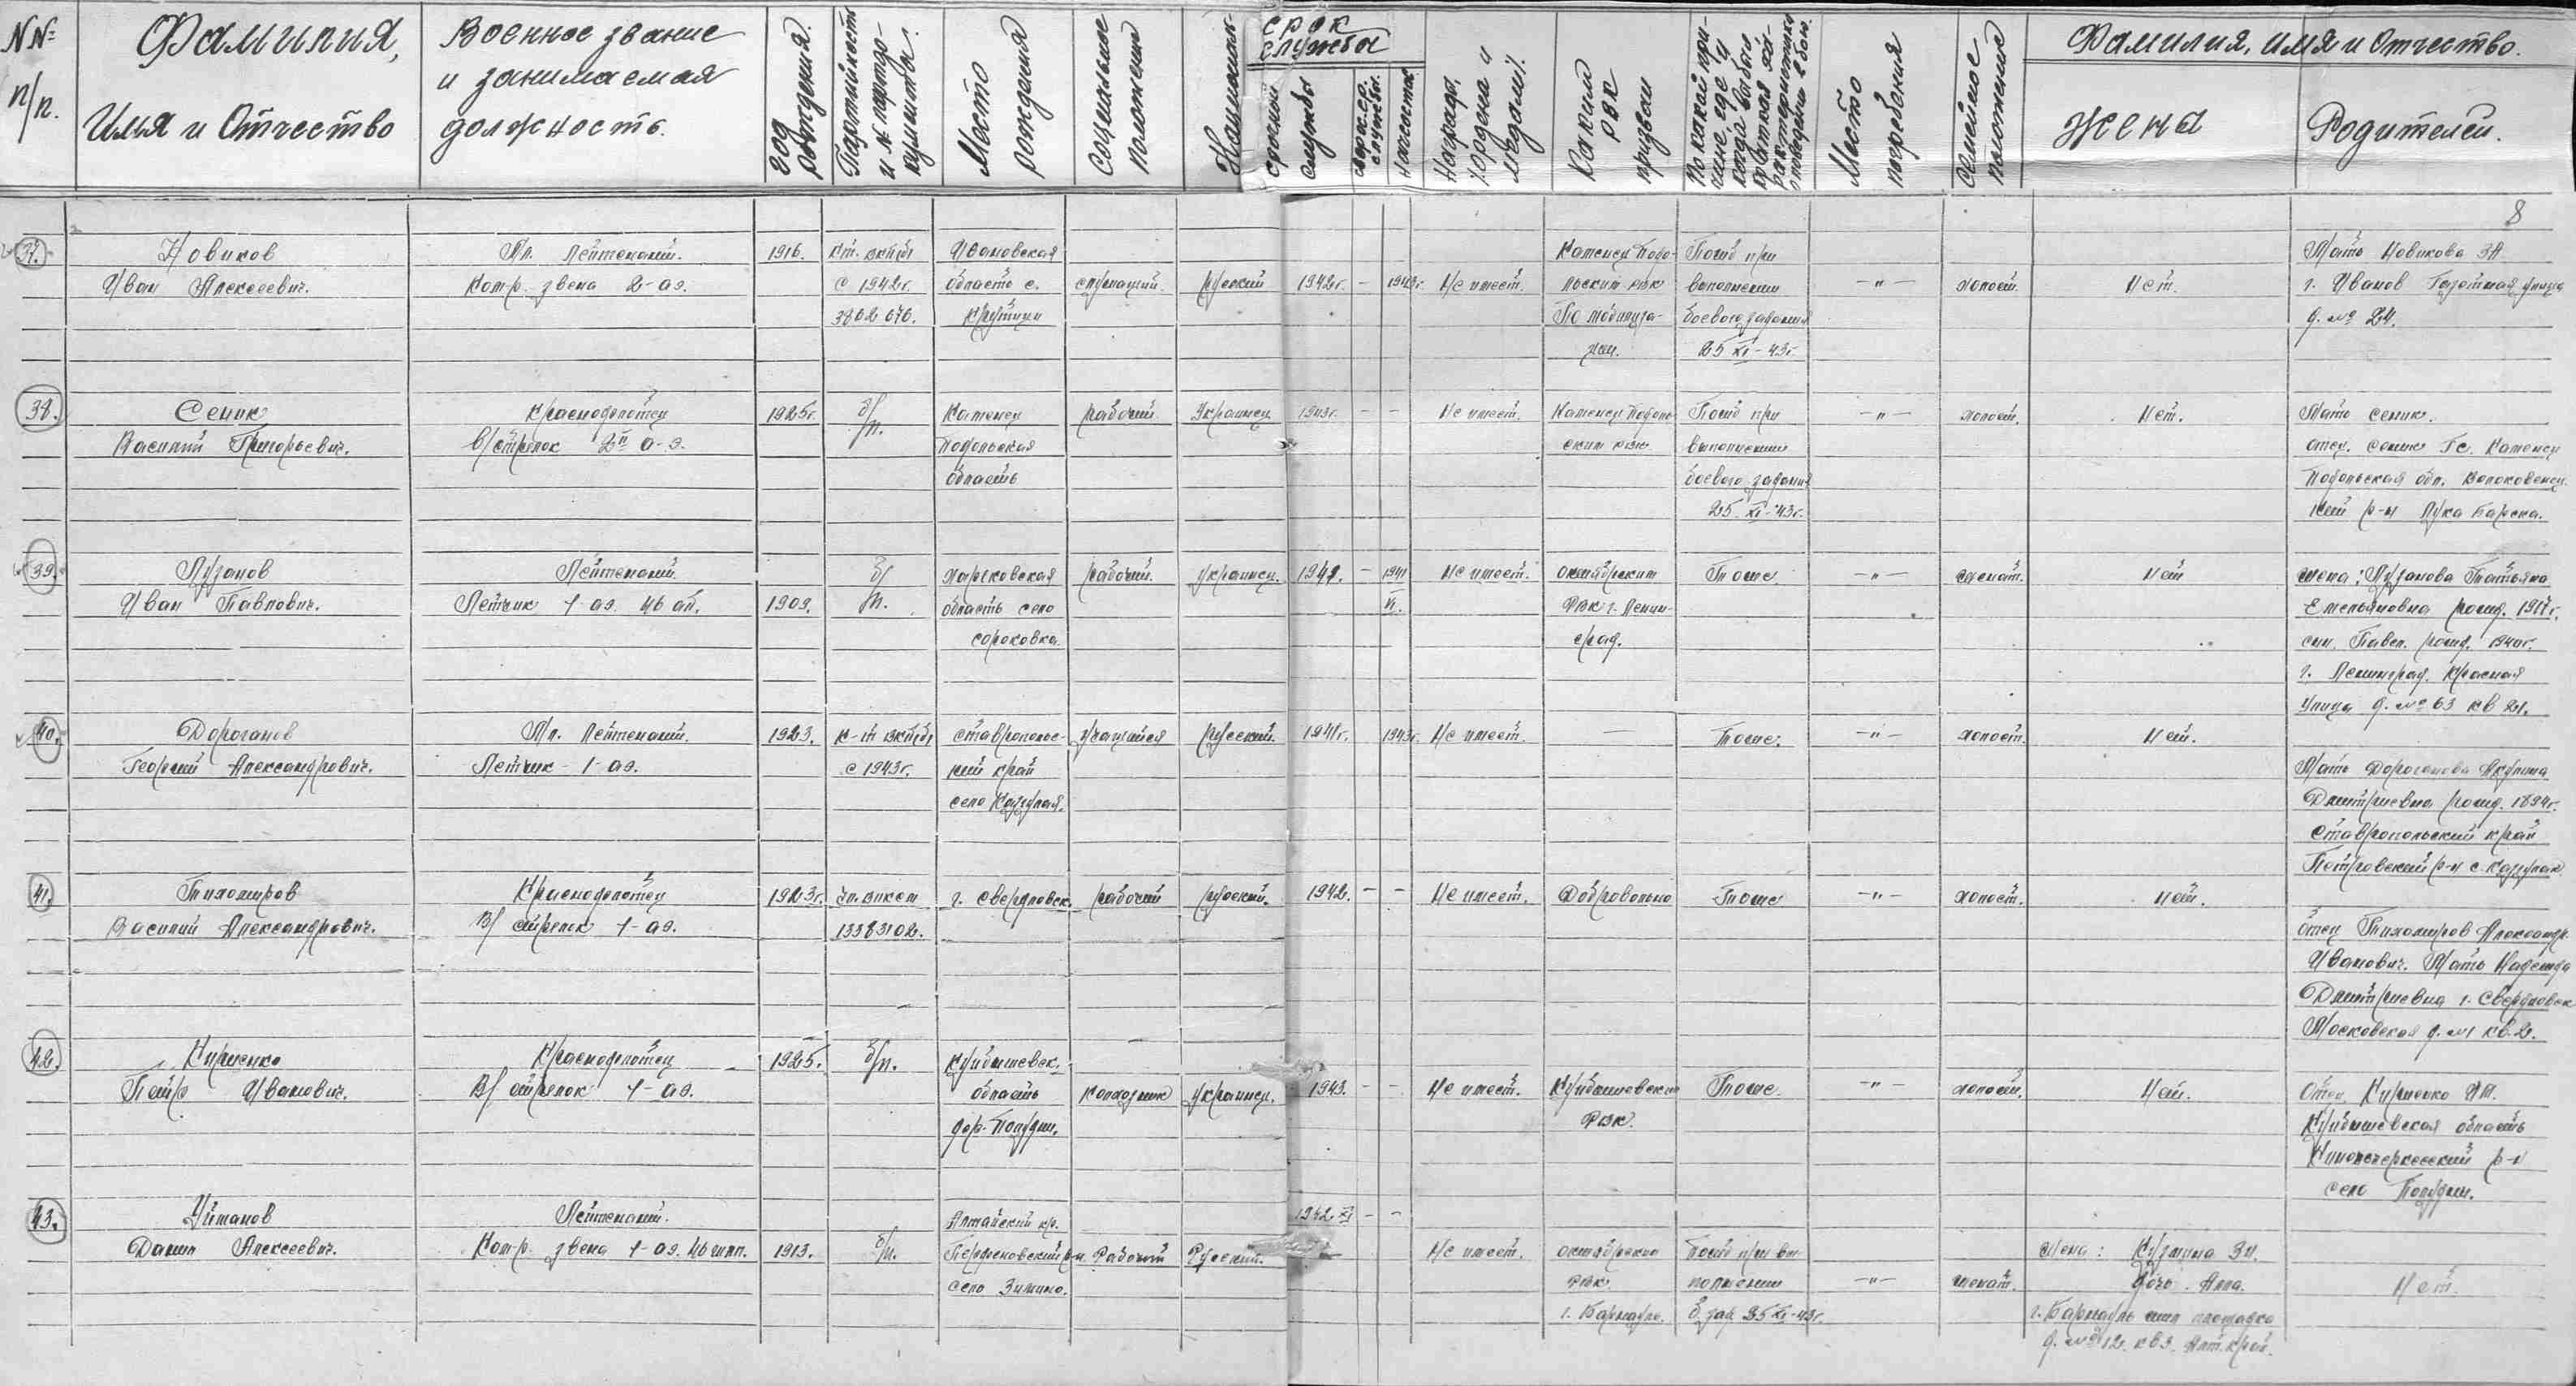 NNº п/п.
Фамилия, Имя и Отчество
Военное звание и занимаемая должность.
Год рождения.
Партийность и № партдокумента.
Место рождения
Социальное положение
Срок службы
срочной службы
сверхср. службы.
Награды, (ордена и медали).
Каким РВК призван
Место погребения
Семейное положение
Фамилия, имя и Отчество.
Жена
Родителей.
8
37.
Новиков
Иван Алексеевич.
Мл. Лейтенант.
Ком-р. звена 2-аэ.
1916.
с 1942г.
3802076.
Ивановская
область с.
служащий.
русский
1942г. - 1943г.
Не имеет.
Каменец Подо-
льским рвк
По мобилиза-
ции.
Погиб при
выполнении
боевого задания
25 XI-43г.
-"-
холост.
Нет.
Мать Новикова
г. Иванов Газетная улица
д. № 24.
38.
Сеник
Василий Григорьевич.
Краснофлотец
В/стрелок 2й а-э.
1925г.
б/п.
Каменец
Подольская
область
рабочий.
Украинец
1943г. - -
Не имеет.
Каменец Подоль-
ским рвк
Погиб при
выполнении
боевого задания
25. XI-43г.
-"-
холост.
Нет.
Мать Сеник.
отец. Сеник Каменец
Подольская обл.
р-н Лука Барска.
39.
Лузанов
Иван Павлович.
Лейтенант.
Летчик 1-аэ. 46 ап.
1909.
б/п.
Харьковская
область село
сороковка.
рабочий.
украинец.
- 1941
VI.
Не имеет.
октябрьским
РВК г. Ленин-
град.
Тоже.
-"-
женат.
Нет
жена: Лузанова Татьяна
Емельяновна рожд. 1917г.
сын. Павел. рожд. 1940г.
г. Ленинград. Красная
улица д. № 63 кв 21.
40.
Дороганов
Георгий Александрович.
Мл. Лейтенант.
Летчик 1-аэ.
1923.
к-т вкп(б)
с 1943г.
Ставрополь-
ский край
село
учащийся
русский.
1941г. 1943г.
Не имеет.
—
Тоже.
-"-
холост.
Нет.
Мать Дороганова Акулина
Дмитриевна рожд. 1894г.
Ставропольский край
Петровский р-н с.
41.
Тихомиров
Василий Александрович.
Краснофлотец
В/стрелок 1-аэ.
1923г.
чл. влксм
13383102.
г. Свердловск.
рабочий
русский.
1942. - -
Не имеет.
Добровольно
Тоже
-"-
холост.
Нет.
Отец Тихомиров Александр
Иванович. Мать Надежда
Дмитриевна г. Свердловск
Московская д. №1 кв. 2.
42.
Кириенко
Петр Иванович.
Краснофлотец
В/стрелок 1-аэ.
1925.
б/п.
Куйбышевск.
область
дер.
Колхозник
украинец.
1943. - -
Не имеет.
Куйбышевским
РВК.
Тоже.
-"-
холост.
Нет.
Отец Кириенко
Куйбышевская область
р-н
село
43.
Уйманов
Данил Алексеевич.
Лейтенант.
Ком-р. звена 1-аэ.
1913.
б/п.
Алтайский кр.
село Зимино.
Рабочий
Русский.
1942 XI - -
Не имеет.
октябрьским
рвк
г. Барнаул.
Погиб при вы-
полнении
б. зад 25 XI-43г.
-"-
женат.
жена: Кузмина
Дочь. Алла.
г. Барнауль площадка
д. № 12. кв 3. Алт. край.
Нет.